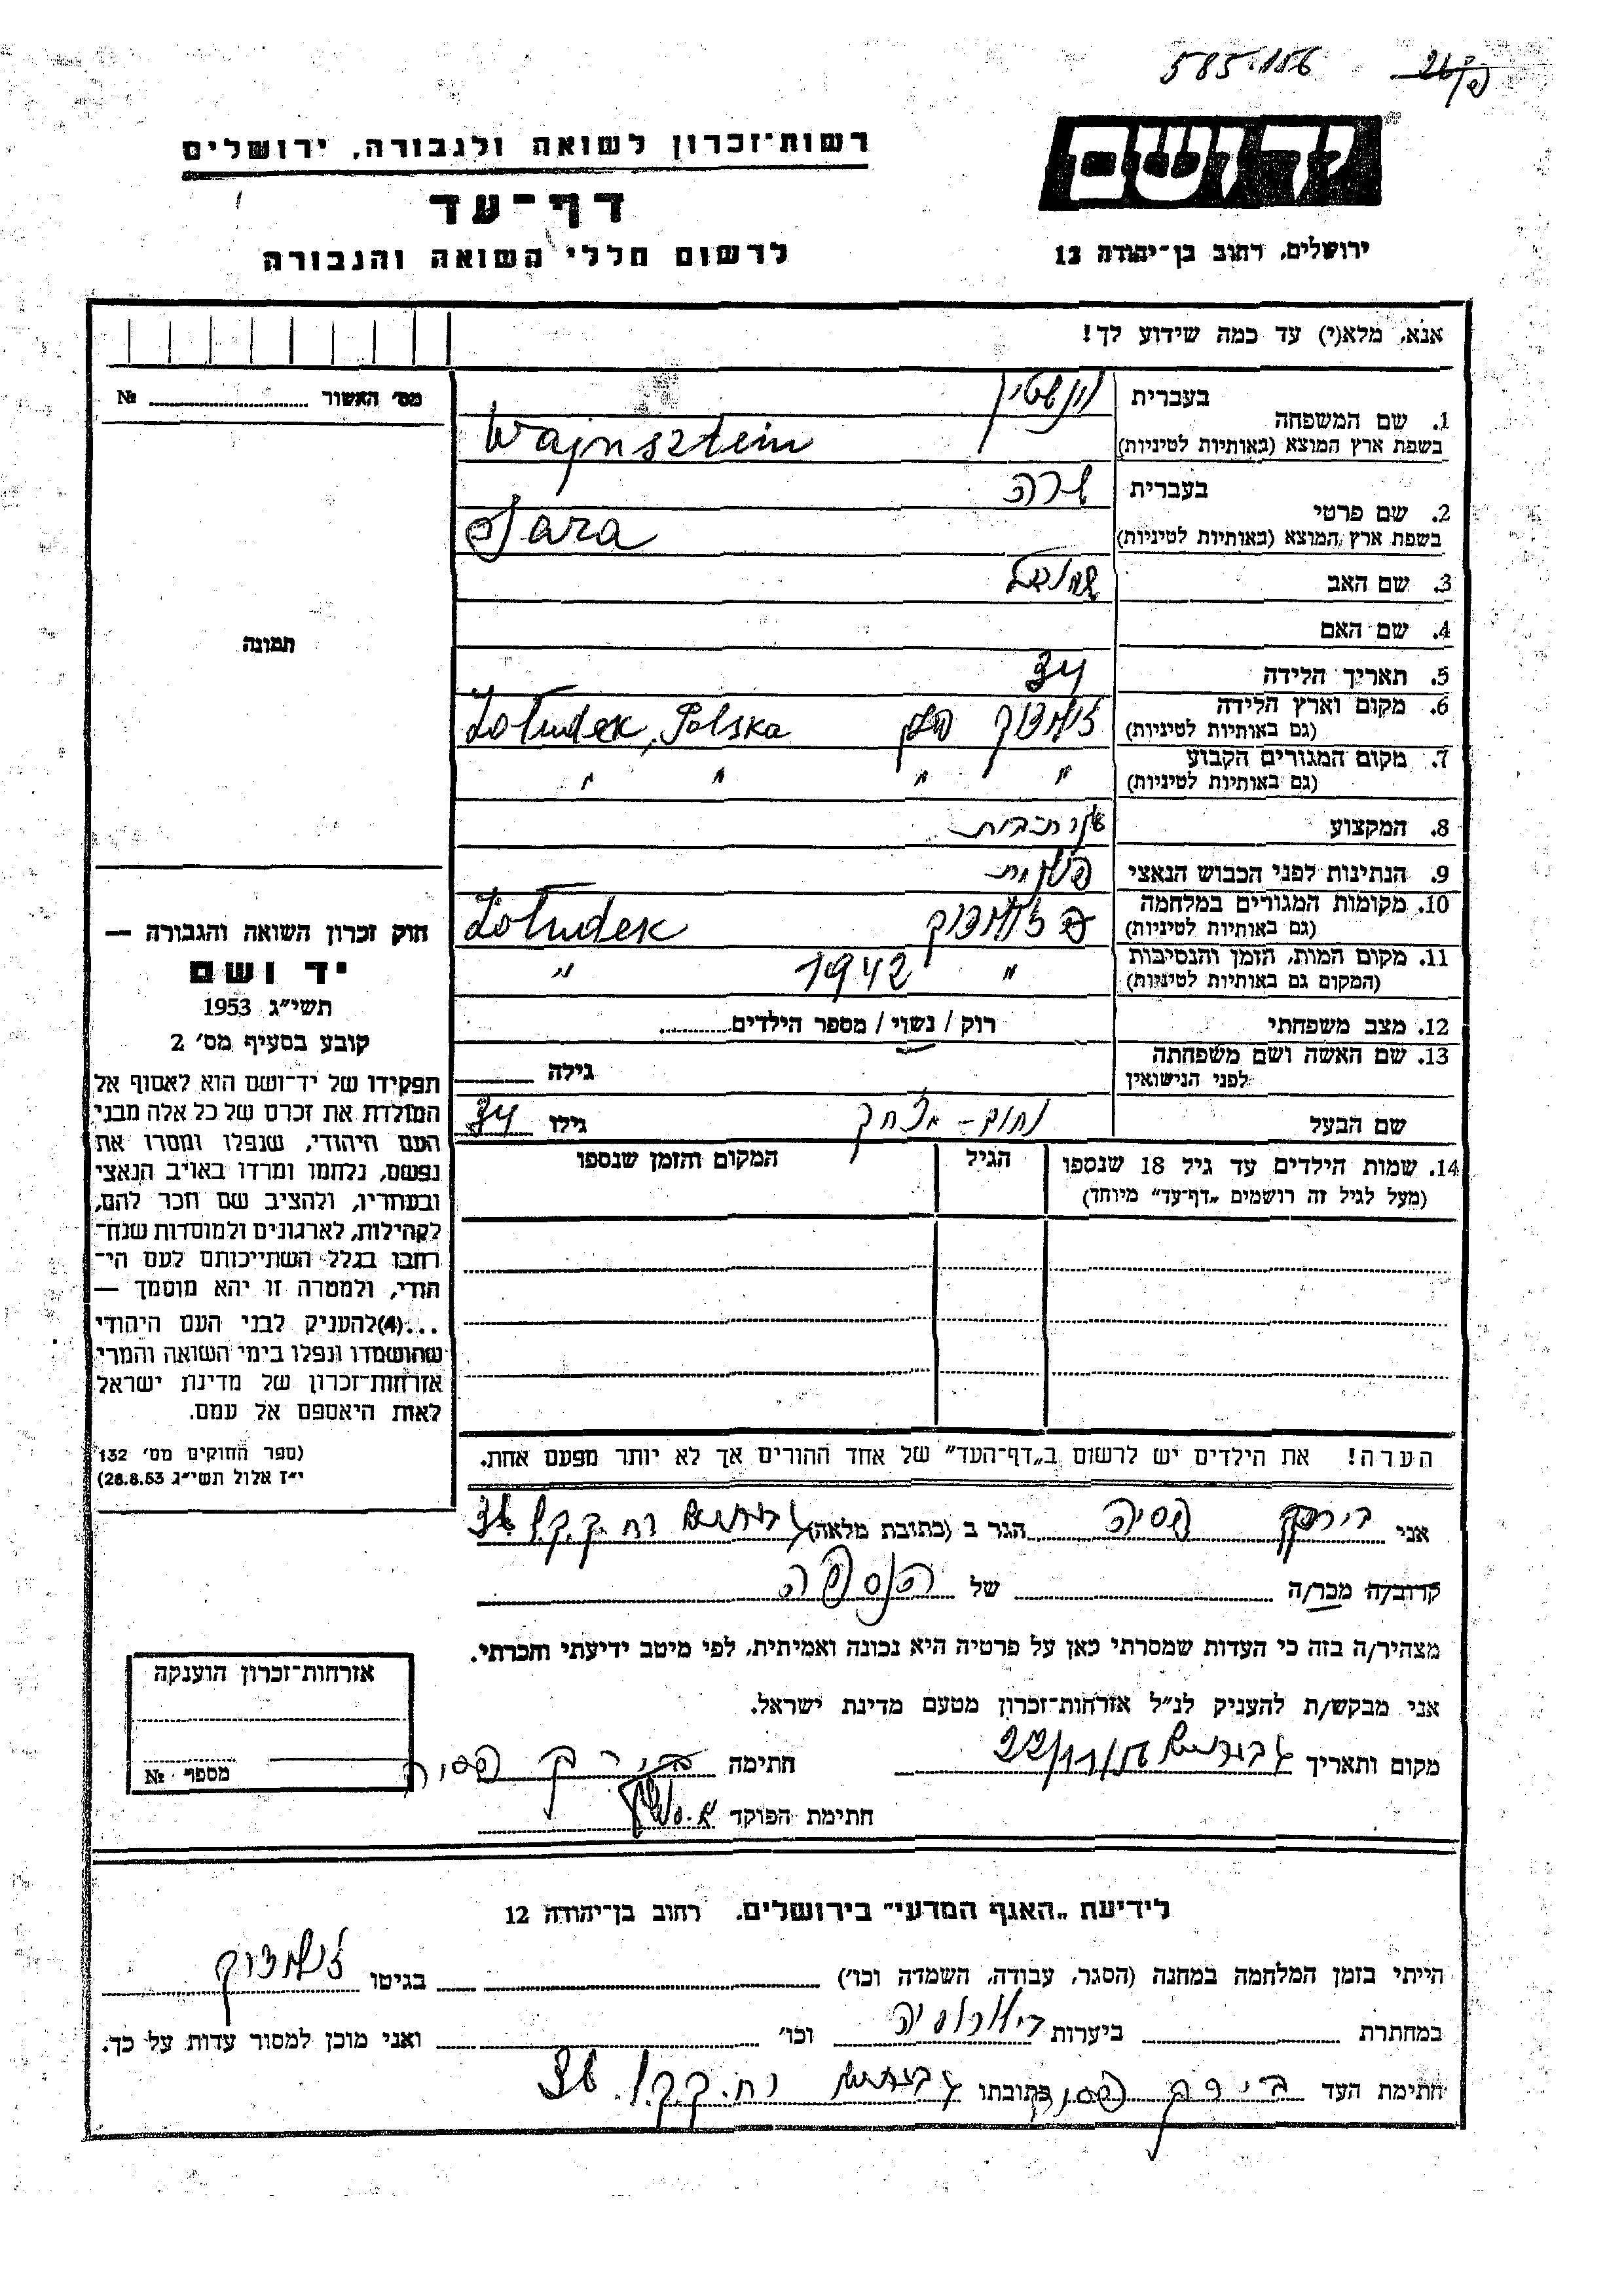 585.156
יד ושם
רשות־זכרון לשואה ולגבורה, ירושלים
דף־עד
ירושלים, רחוב בן־יהודה 12
לרשום חללי השואה והגבורה
אנא, מלא(י) עד כמה שידוע לך!
מס׳ האשור № 
1. שם המשפחה בעברית וינשטין
בשפת ארץ המוצא (באותיות לטיניות) Wajnsztein
2. שם פרטי בעברית שרה
בשפת ארץ המוצא (באותיות לטיניות) Sara
3. שם האב שמואל
4. שם האם
תמונה
5. תאריך הלידה 34
6. מקום וארץ הלידה (גם באותיות לטיניות) Żołudek, Polska
7. מקום המגורים הקבוע (גם באותיות לטיניות) " " " "
8. המקצוע עקרת בית
9. הנתינות לפני הכבוש הנאצי פולנית
10. מקומות המגורים במלחמה (גם באותיות לטיניות) Żołudek
11. מקום המות, הזמן והנסיבות (המקום גם באותיות לטיניות) " 1942 "
12. מצב משפחתי רוק / נשוי / מספר הילדים
13. שם האשה ושם משפחתה לפני הנישואין גילה
שם הבעל נחום - יצחק גילו 34
14. שמות הילדים עד גיל 18 שנספו הגיל המקום והזמן שנספו
(מעל לגיל זה רושמים „דף־עד” מיוחד)
הערה! את הילדים יש לרשום ב„דף־העד” של אחד ההורים אך לא יותר מפעם אחת.
חוק זכרון השואה והגבורה —
יד ושם
תשי״ג 1953
קובע בסעיף מס׳ 2
תפקידו של יד־ושם הוא לאסוף אל
המולדת את זכרם של כל אלה מבני
העם היהודי, שנפלו ומסרו את
נפשם, נלחמו ומרדו באויב הנאצי
ובעוזריו, ולהציב שם וזכר להם,
לקהילות, לארגונים ולמוסדות שנח־
רבו בגלל השתייכותם לעם הי־
הודי, ולמטרה זו יהא מוסמך —
...(4) להעניק לבני העם היהודי
שהושמדו ונפלו בימי השואה והמרי
אזרחות־זכרון של מדינת ישראל
לאות היאספם אל עמם.
(ספר החוקים מס׳ 132
י״ז אלול תשי״ג 28.8.53)
אני הגר ב (כתובת מלאה) רח ק.ק.ל.
קרוב/ה מכר/ה של הנספה
מצהיר/ה בזה כי העדות שמסרתי כאן על פרטיה היא נכונה ואמיתית, לפי מיטב ידיעתי והכרתי.
אני מבקש/ת להעניק לנ״ל אזרחות־זכרון מטעם מדינת ישראל.
מקום ותאריך 22/11/56 חתימה
חתימת הפוקד
אזרחות־זכרון הוענקה
מספר №
לידיעת „האגף המדעי” בירושלים, רחוב בן־יהודה 12
הייתי בזמן המלחמה במחנה (הסגר, עבודה, השמדה וכו׳) בגיטו
במחתרת ביערות וכו׳ ואני מוכן למסור עדות על כך.
חתימת העד כתובתו רח. ק.ק.ל.